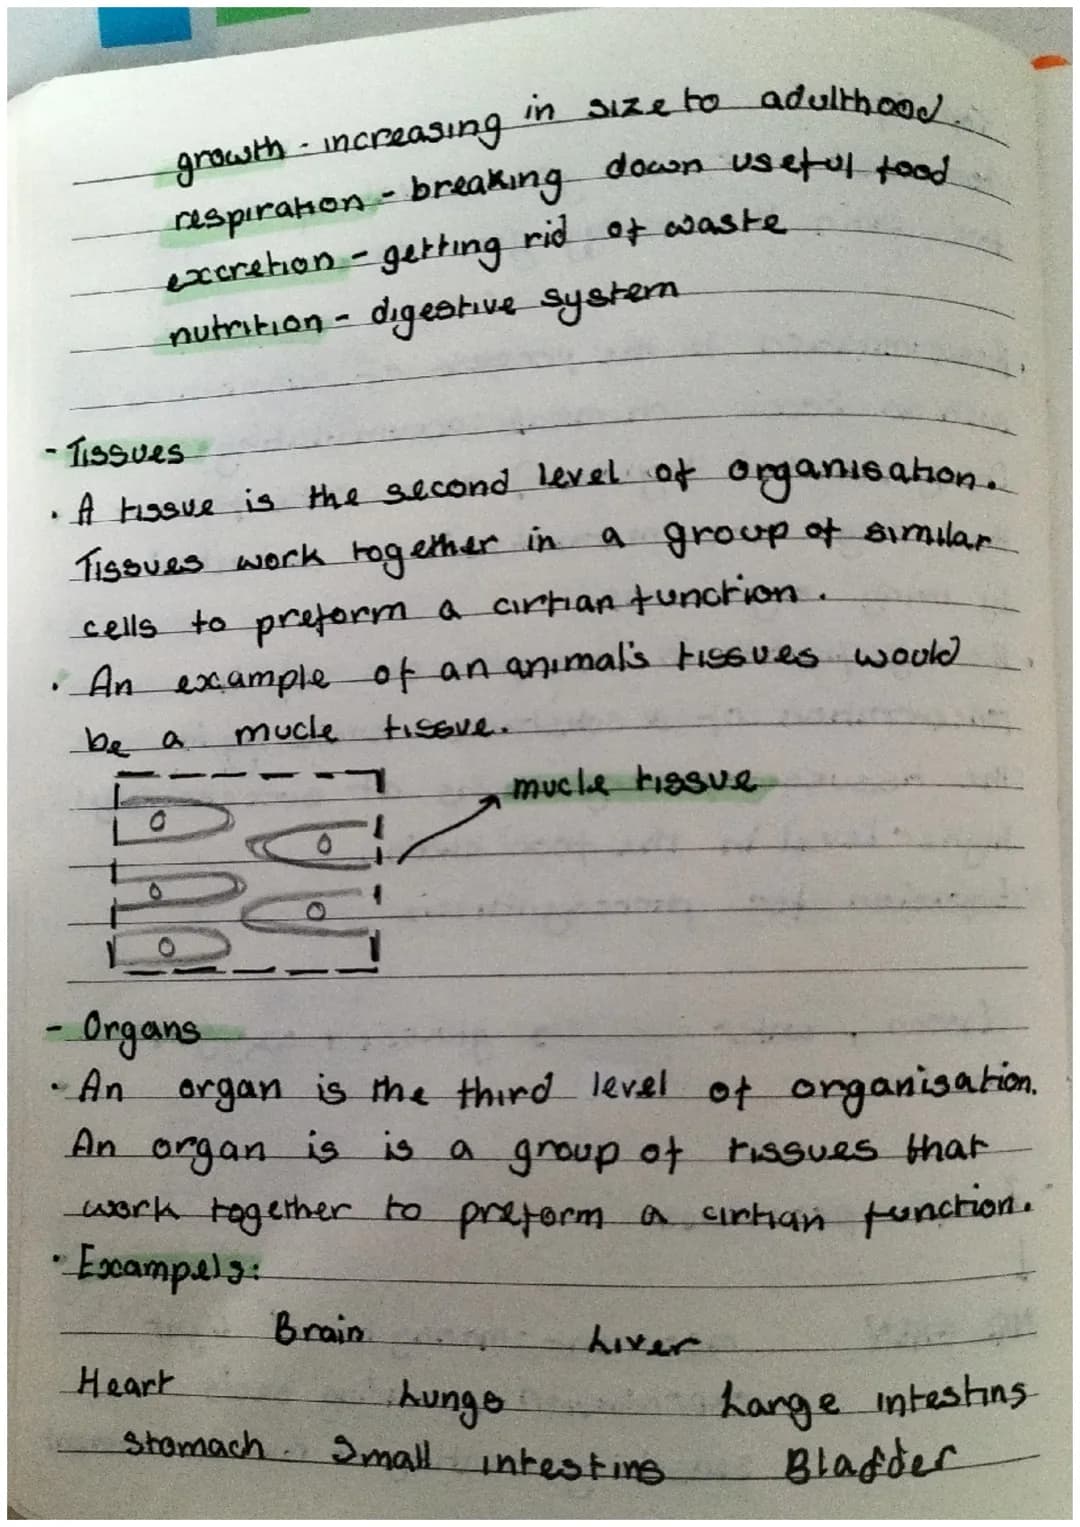 growth - increasing in size to adulthood.
respiration - breaking down useful food
excretion - getting rid of waste
nutrition - digestive system
- Tissues
· A tissue is the second level of organisation.
Tissues work together in a group of similar
cells to preform a cirtian function.
· An example of an animal's tissues would
be a mucle tissue.
mucle tissue
- Organs
· An organ is the third level of organisation.
An organ is is a group of tissues that
work together to preform a cirtian function.
· Exampels:
Brain Liver
Heart Lungs Large intestins
Stomach Small intestins Bladder